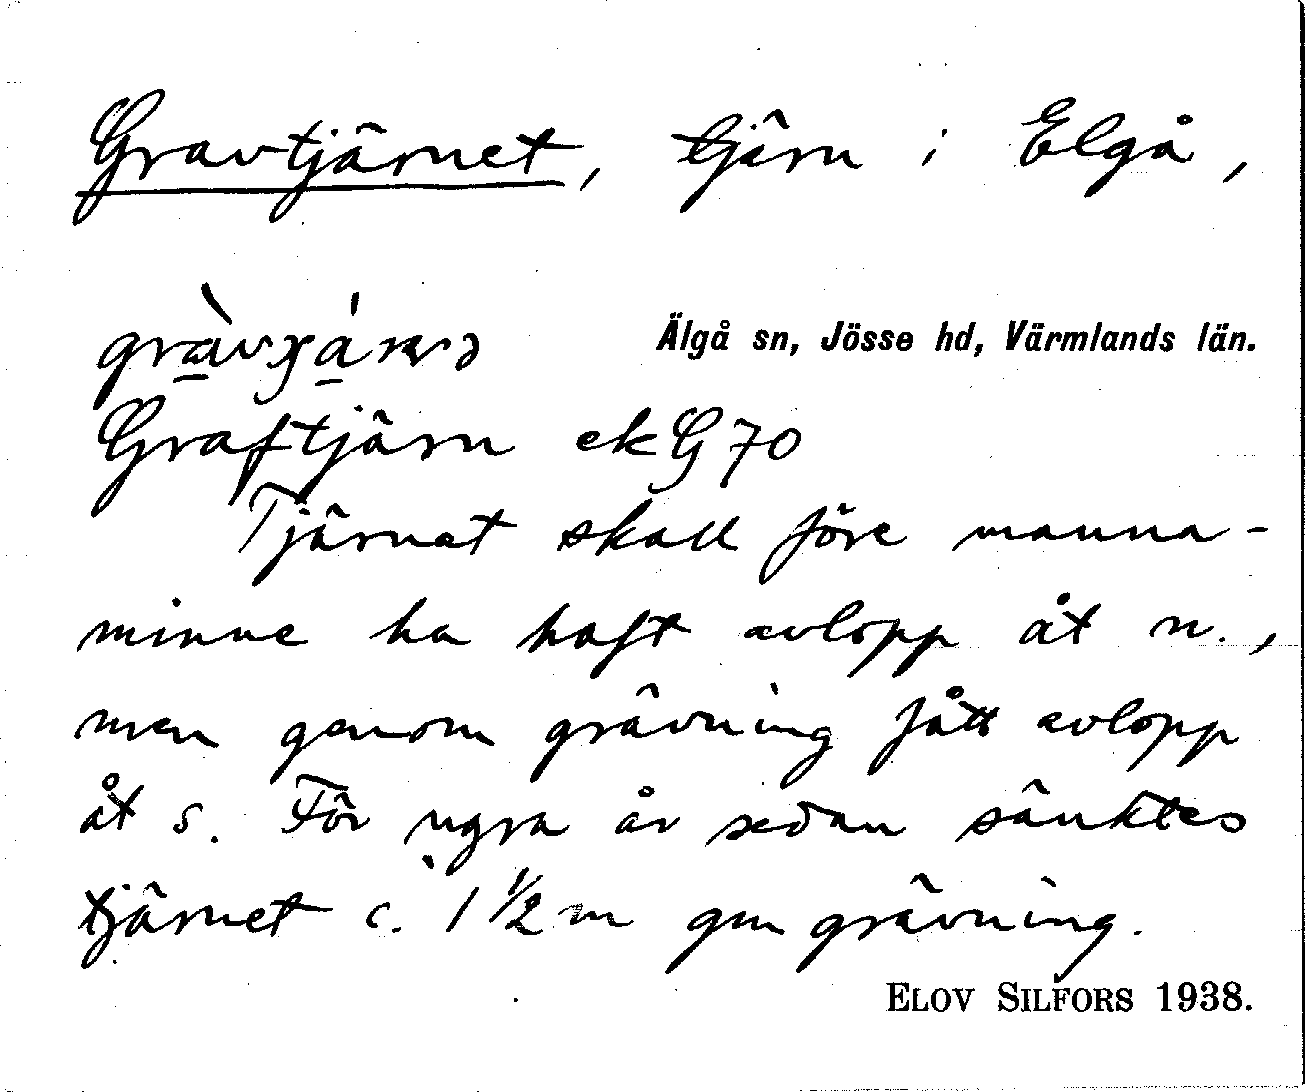 Gravtjärnet, tjärn i Elgå,
Älgå sn, Jösse hd, Värmlands län.
Graftjärn ek G 70
Tjärnet skall före manna-
minne ha haft avlopp åt n.,
men genom grävning fått avlopp
åt s. För ngra år sedan sänktes
tjärnet c. 1 ½ m gm grävning.
ELOV SILFORS 1938.